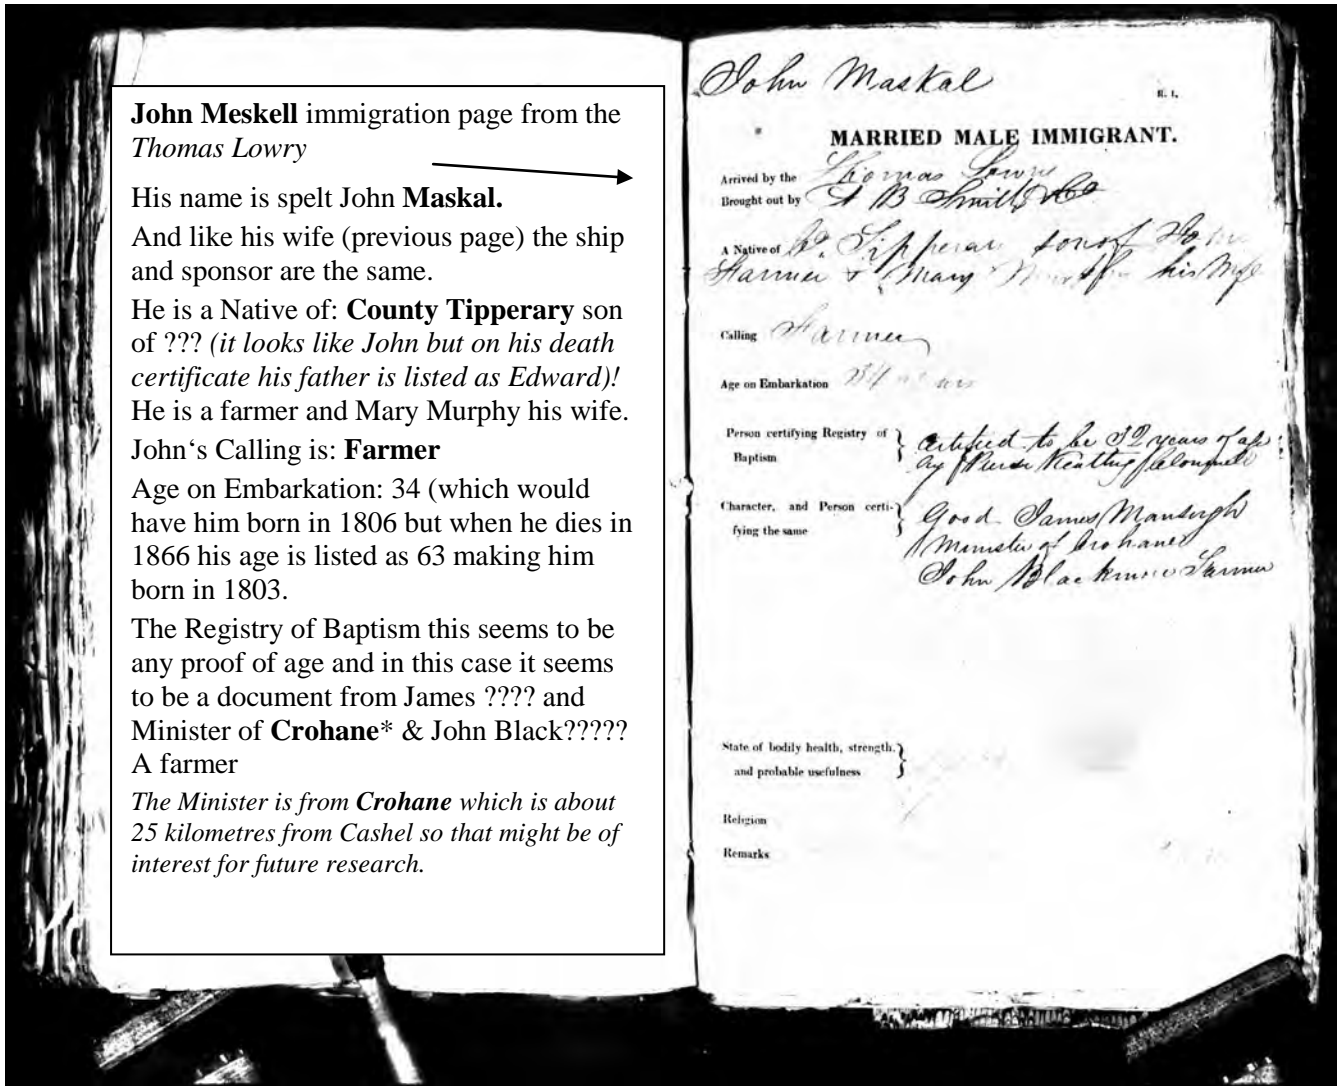 John Meskell immigration page from the
Thomas Lowry
His name is spelt John Maskal.
And like his wife (previous page) the ship
and sponsor are the same.
He is a Native of: County Tipperary son
of ??? (it looks like John but on his death
certificate his father is listed as Edward)!
He is a farmer and Mary Murphy his wife.
John‘s Calling is: Farmer
Age on Embarkation: 34 (which would
have him born in 1806 but when he dies in
1866 his age is listed as 63 making him
born in 1803.
The Registry of Baptism this seems to be
any proof of age and in this case it seems
to be a document from James ???? and
Minister of Crohane* & John Black?????
A farmer
The Minister is from Crohane which is about
25 kilometres from Cashel so that might be of
interest for future research.
John Maskal
MARRIED MALE IMMIGRANT.
Arrived by the Thomas Lowrie
Brought out by A B Smith & Co
A Native of Co. Tipperary son of John
Farmer & Mary his Wife
Calling Farmer
Age on Embarkation 34 years
Person certifying Registry of Baptism
Certified to be 32 years of age
by Pierse Keating
Character, and Person certifying the same
Good James Mansergh
Minister of Crohane
John Blackmore Farmer
State of bodily health, strength,
and probable usefulness
Religion
Remarks